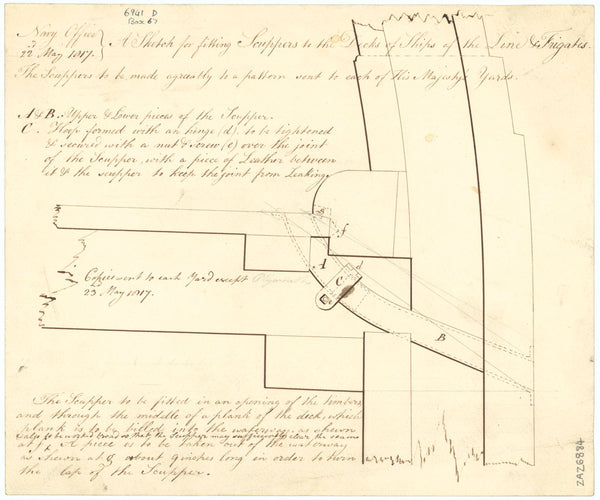 6941 D
Box 67
Navy Office
22d May 1817.
A Sketch for fitting Scuppers to the Decks of Ships of the Line & Frigates.
The Scuppers to be made agreeably to a pattern sent to each of His Majesty's Yards.
A & B. Upper & Lower pieces of the Scupper.
C. Hoop formed with an hinge (d) to be tightened
& secured with a nut & screw (e) over the joint
of the Scupper, with a piece of Leather between
it & the scupper to keep the joint from Leaking.
g
f
A
d
C
e
B
Copies sent to each Yard except Plymouth
23d May 1817.
The Scupper to be fitted in an opening of the timbers
and through the middle of a plank of the deck, which
plank is to be billed into the waterway as shewn
also to be worked broad so that the Scupper may sufficiently clear the seams
at f. A piece is to be taken out of the waterway
as shewn at g about 9 inches long in order to turn
the lap of the Scupper.
ZAZ6884